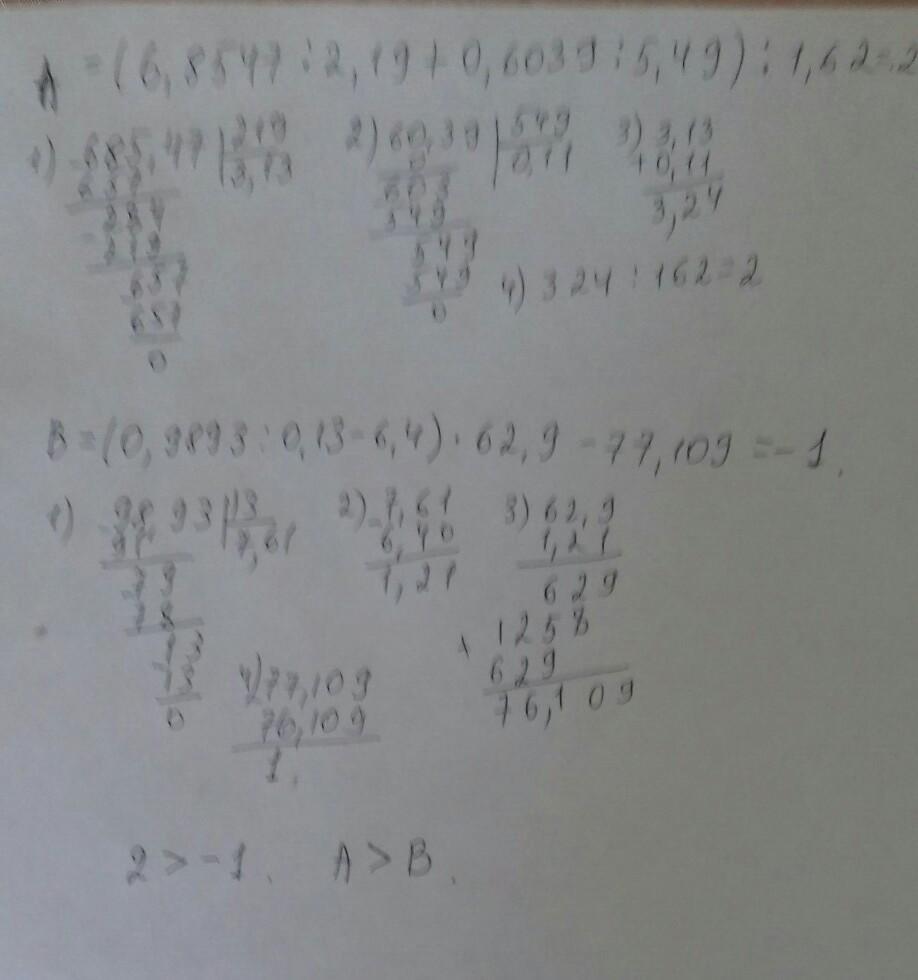 A = (6,8547 : 2,19 + 0,6039 : 5,49) : 1,62 = 2
1) 685,47 | 219 2) 60,39 | 549 3) 3,13
657 3,13 0 0,11 + 0,11
284 603 3,24
219 549
657 549 4) 324 : 162 = 2
657 549
0 0
B = (0,9893 : 0,13 - 6,4) · 62,9 - 77,109 = -1.
1) 98,93 | 13 2) 7,61 3) 62,9
91 7,61 6,40 1,21
79 1,21 629
78 1258
13 4) 77,109 629
13 76,109 76,109
0 1.
2 > -1. A > B.